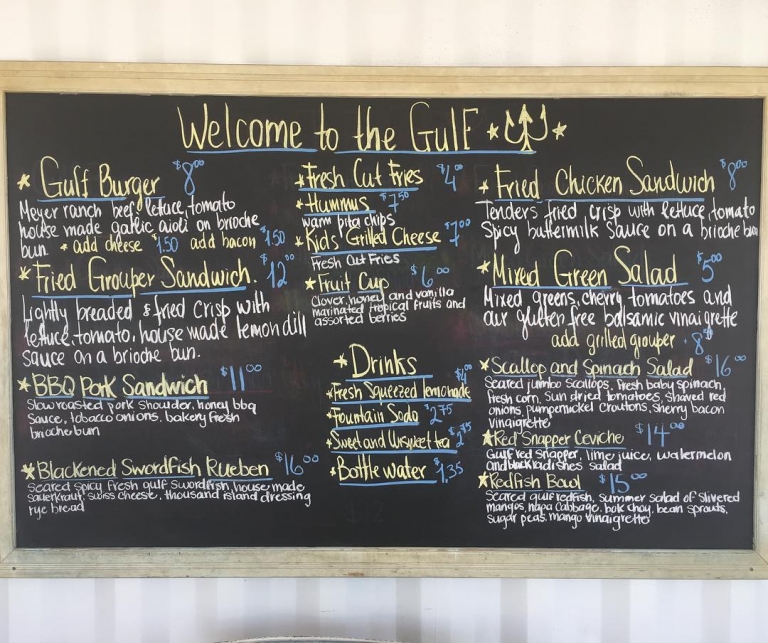 Welcome to the Gulf
Gulf Burger $8.00
Meyer ranch beef, lettuce, tomato
house made garlic aioli on brioche
bun * add cheese $1.50 add bacon $1.50
Fried Grouper Sandwich. $12.00
Lightly breaded & fried crisp with
lettuce, tomato, house made lemon dill
sauce on a brioche bun.
BBQ Pork Sandwich $11.00
Slow roasted pork shoulder, honey bbq
sauce, tobacco onions, bakery fresh
brioche bun
Blackened Swordfish Rueben $16.00
Seared spicy fresh gulf swordfish, house made
sauerkraut, swiss cheese, thousand island dressing
rye bread
Fresh Cut Fries $4.00
Hummus $7.50
warm pita chips
Kids Grilled Cheese $7.00
Fresh Cut Fries
Fruit Cup $6.00
Clover, honey and vanilla
marinated tropical fruits and
assorted berries
Drinks
Fresh Squeezed lemonade $4
Fountain Soda $2.75
Sweet and Unsweet tea $2.45
Bottle Water $1.35
Fried Chicken Sandwich $8.00
Tenders fried crisp with lettuce, tomato
Spicy buttermilk sauce on a brioche bun
Mixed Green Salad $5.00
Mixed greens, cherry tomatoes and
our gluten free balsamic vinaigrette
add grilled grouper $8.00
Scallop and Spinach Salad $16.00
Seared jumbo scallops, fresh baby spinach,
fresh corn, sun dried tomatoes, shaved red
onions, pumpernickel croutons, sherry bacon
vinaigrette
Red Snapper Ceviche $14.00
Gulf red snapper, lime juice, watermelon
and black radishes salad
Redfish Bowl $15.00
Seared gulf redfish, summer salad of slivered
mangos, napa cabbage, bok choy, bean sprouts,
sugar peas, mango vinaigrette